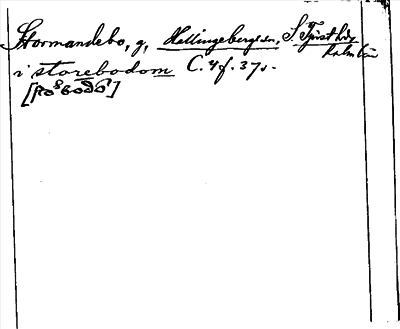 Stormandebo, g, Hallingebergs sn, S Tjust hd,
Kalm län
i storebodom C. 4 f. 37v.